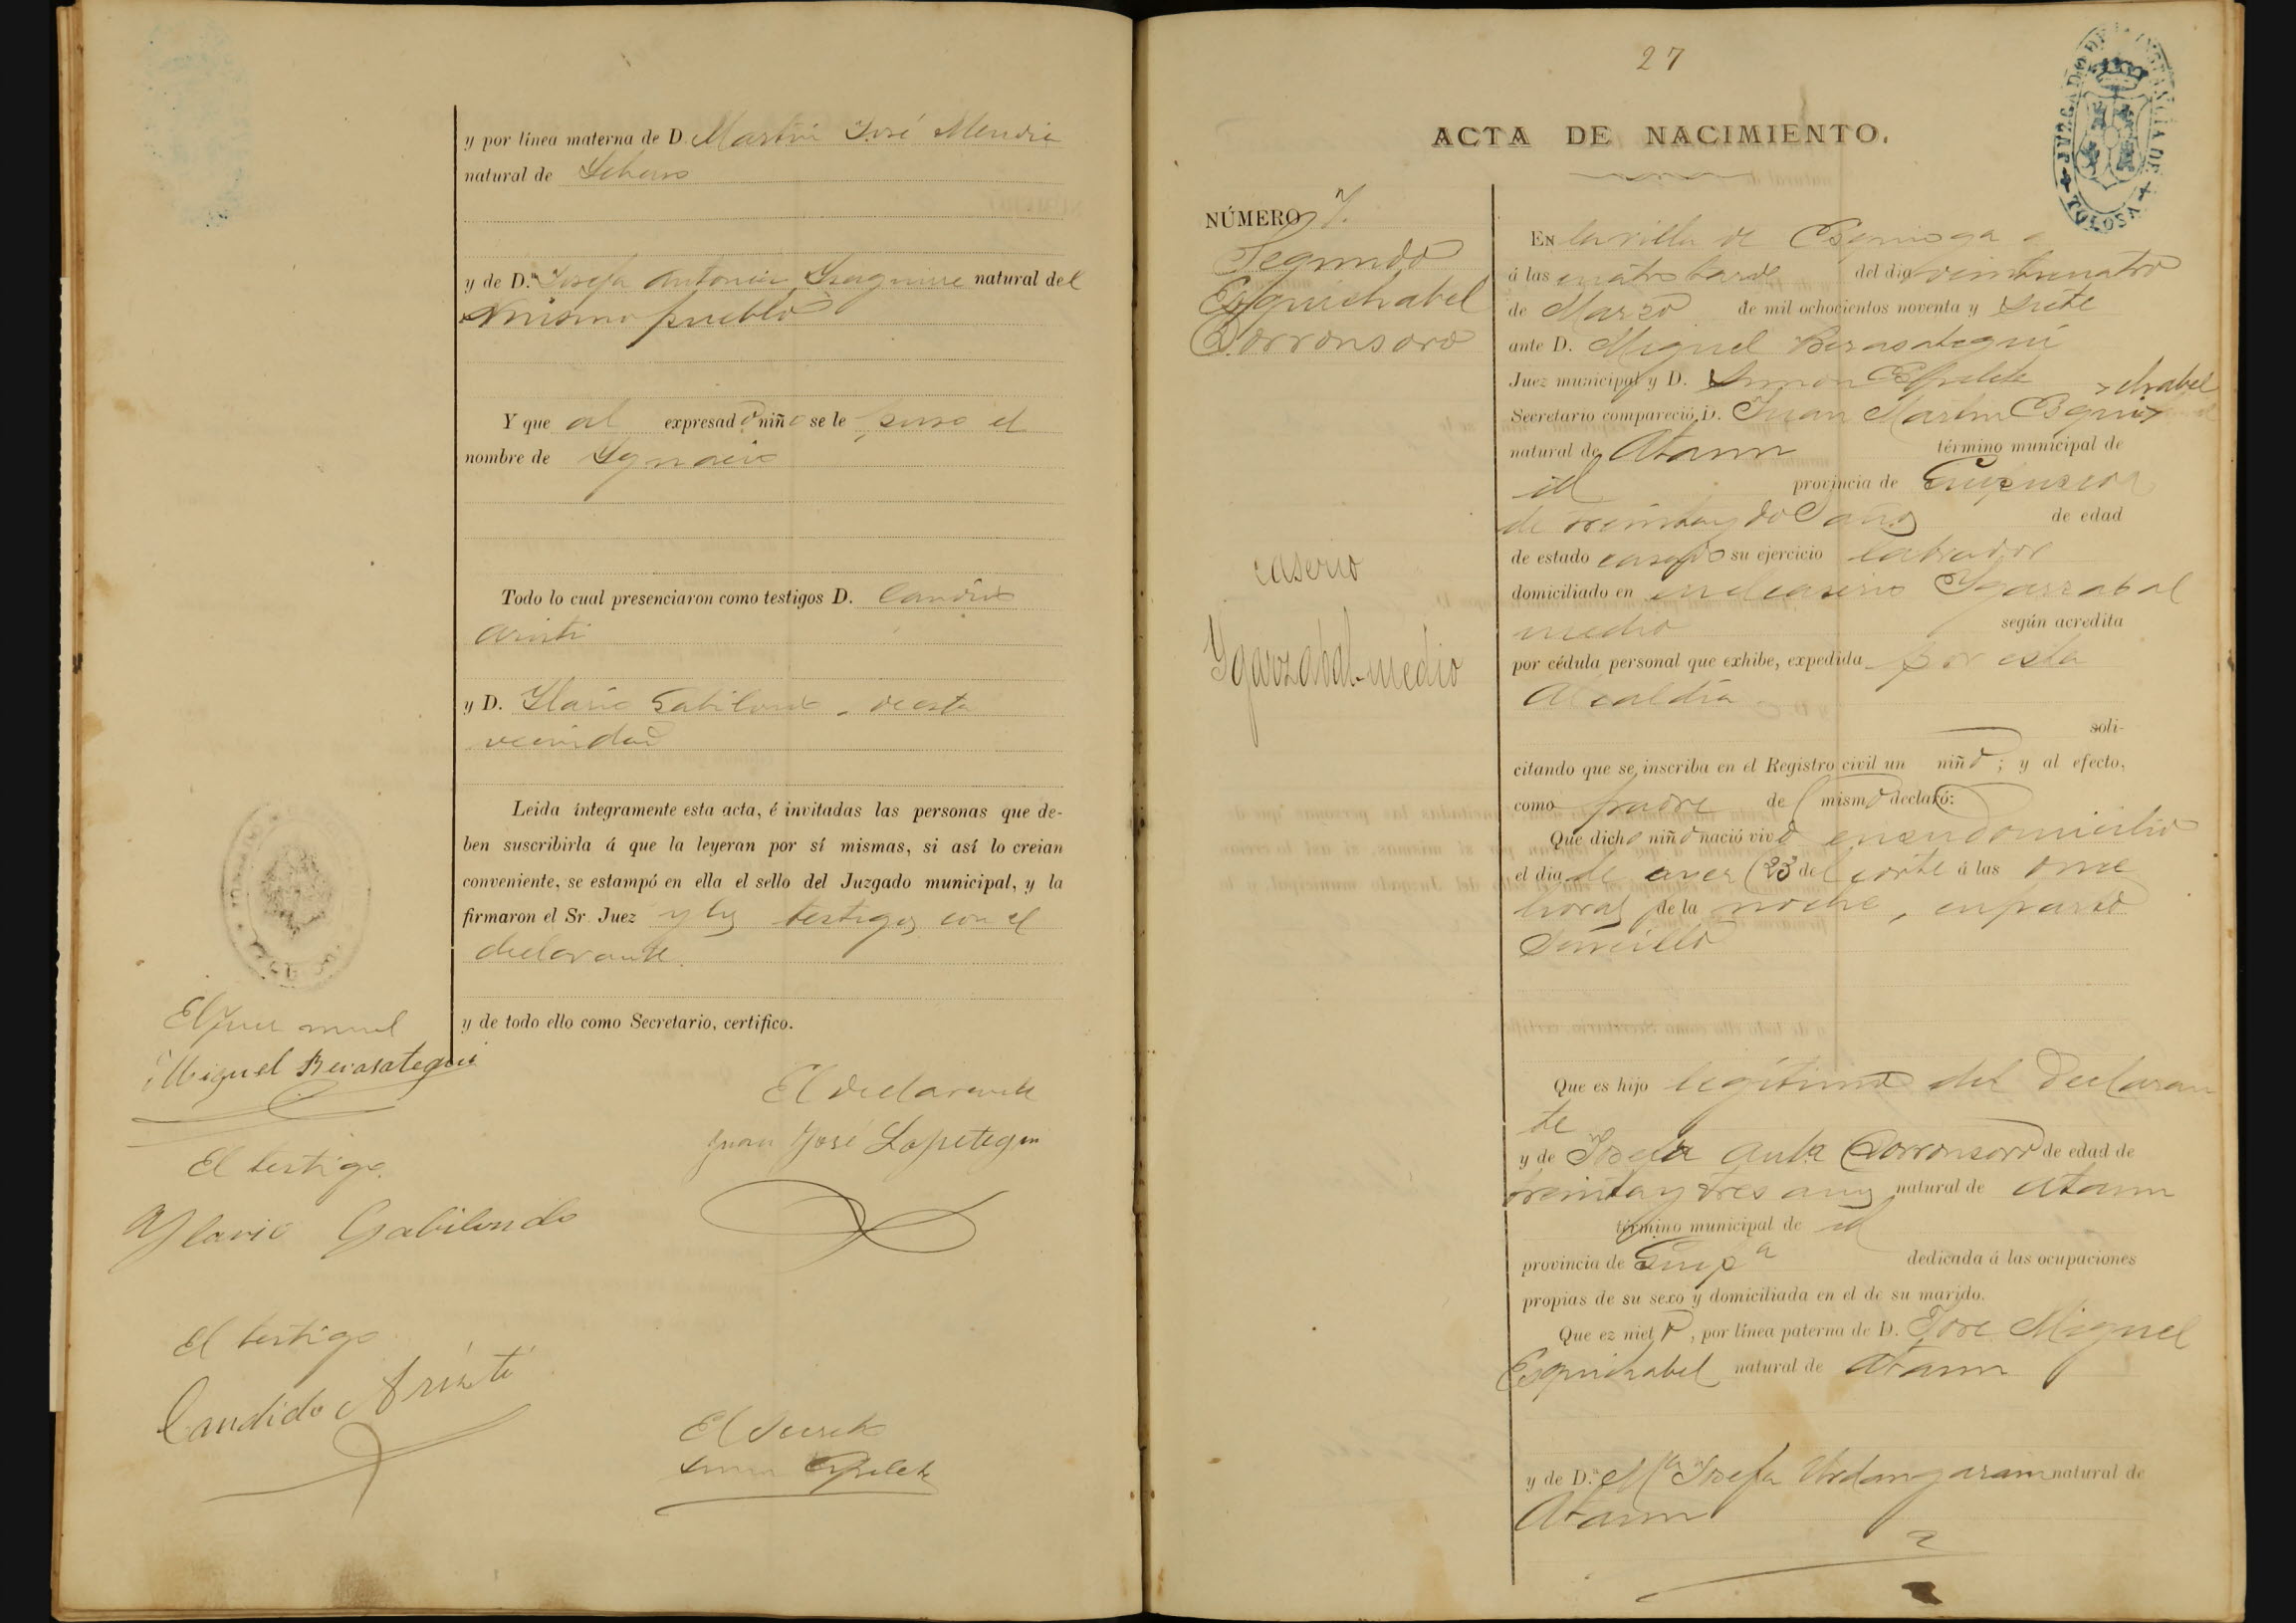 y por línea materna de D. Martín José Mendia
natural de
y de D.ª Josefa Antonia natural del
mismo pueblo
Y que al expresado niño se le puso el
nombre de Ygnacio
Todo lo cual presenciaron como testigos D. Candido
Aristi
y D. Ylario Gabilondo, de esta
vecindad
Leida íntegramente esta acta, é invitadas las personas que de-
ben suscribirla á que la leyeran por sí mismas, si así lo creian
conveniente, se estampó en ella el sello del Juzgado municipal, y la
firmaron el Sr. Juez y los testigos con el
declarante.
y de todo ello como Secretario, certifico.
El Juez munl
Miguel Berasategui
El declarante
Juan José Lopetegui
El testigo
Ylario Gabilondo
El testigo
Candido Aristi
El Secreto
27
JUZGADO DE INSTANCIA DE TOLOSA
ACTA DE NACIMIENTO.
NÚMERO 7.
Segundo
Esquichabel
Dorronsoro
caserio
Ygarzabal-medio
En la villa de Ezquioga
á las cuatro tarde del dia veinticuatro
de Marzo de mil ochocientos noventa y siete
ante D. Miguel Berasategui
Juez municipal y D. Simon
Secretario compareció, D. Juan Martin Esqui chabel
natural de Ataun término municipal de
id provincia de Guipuzcoa
de treinta y dos años de edad
de estado casado su ejercicio labrador
domiciliado en en el caserio Ygarzabal
medio según acredita
por cédula personal que exhibe, expedida por esta
Alcaldía
soli-
citando que se inscriba en el Registro civil un niño; y al efecto,
como padre del mismo declaró:
Que dicho niño nació vivo en su domicilio
el dia de ayer (23 del corte á las once
horas de la noche, en parto
sencillo
Que es hijo legítimo del declaran
te
y de Josefa Anta Dorronsoro de edad de
treinta y tres años natural de Ataun
término municipal de id
provincia de Guipª dedicada á las ocupaciones
propias de su sexo y domiciliada en el de su marido.
Que ez nieto, por línea paterna de D. Jose Miguel
Esquichabel natural de Ataun
y de D.ª Mª Josefa Urdangarain natural de
Ataun